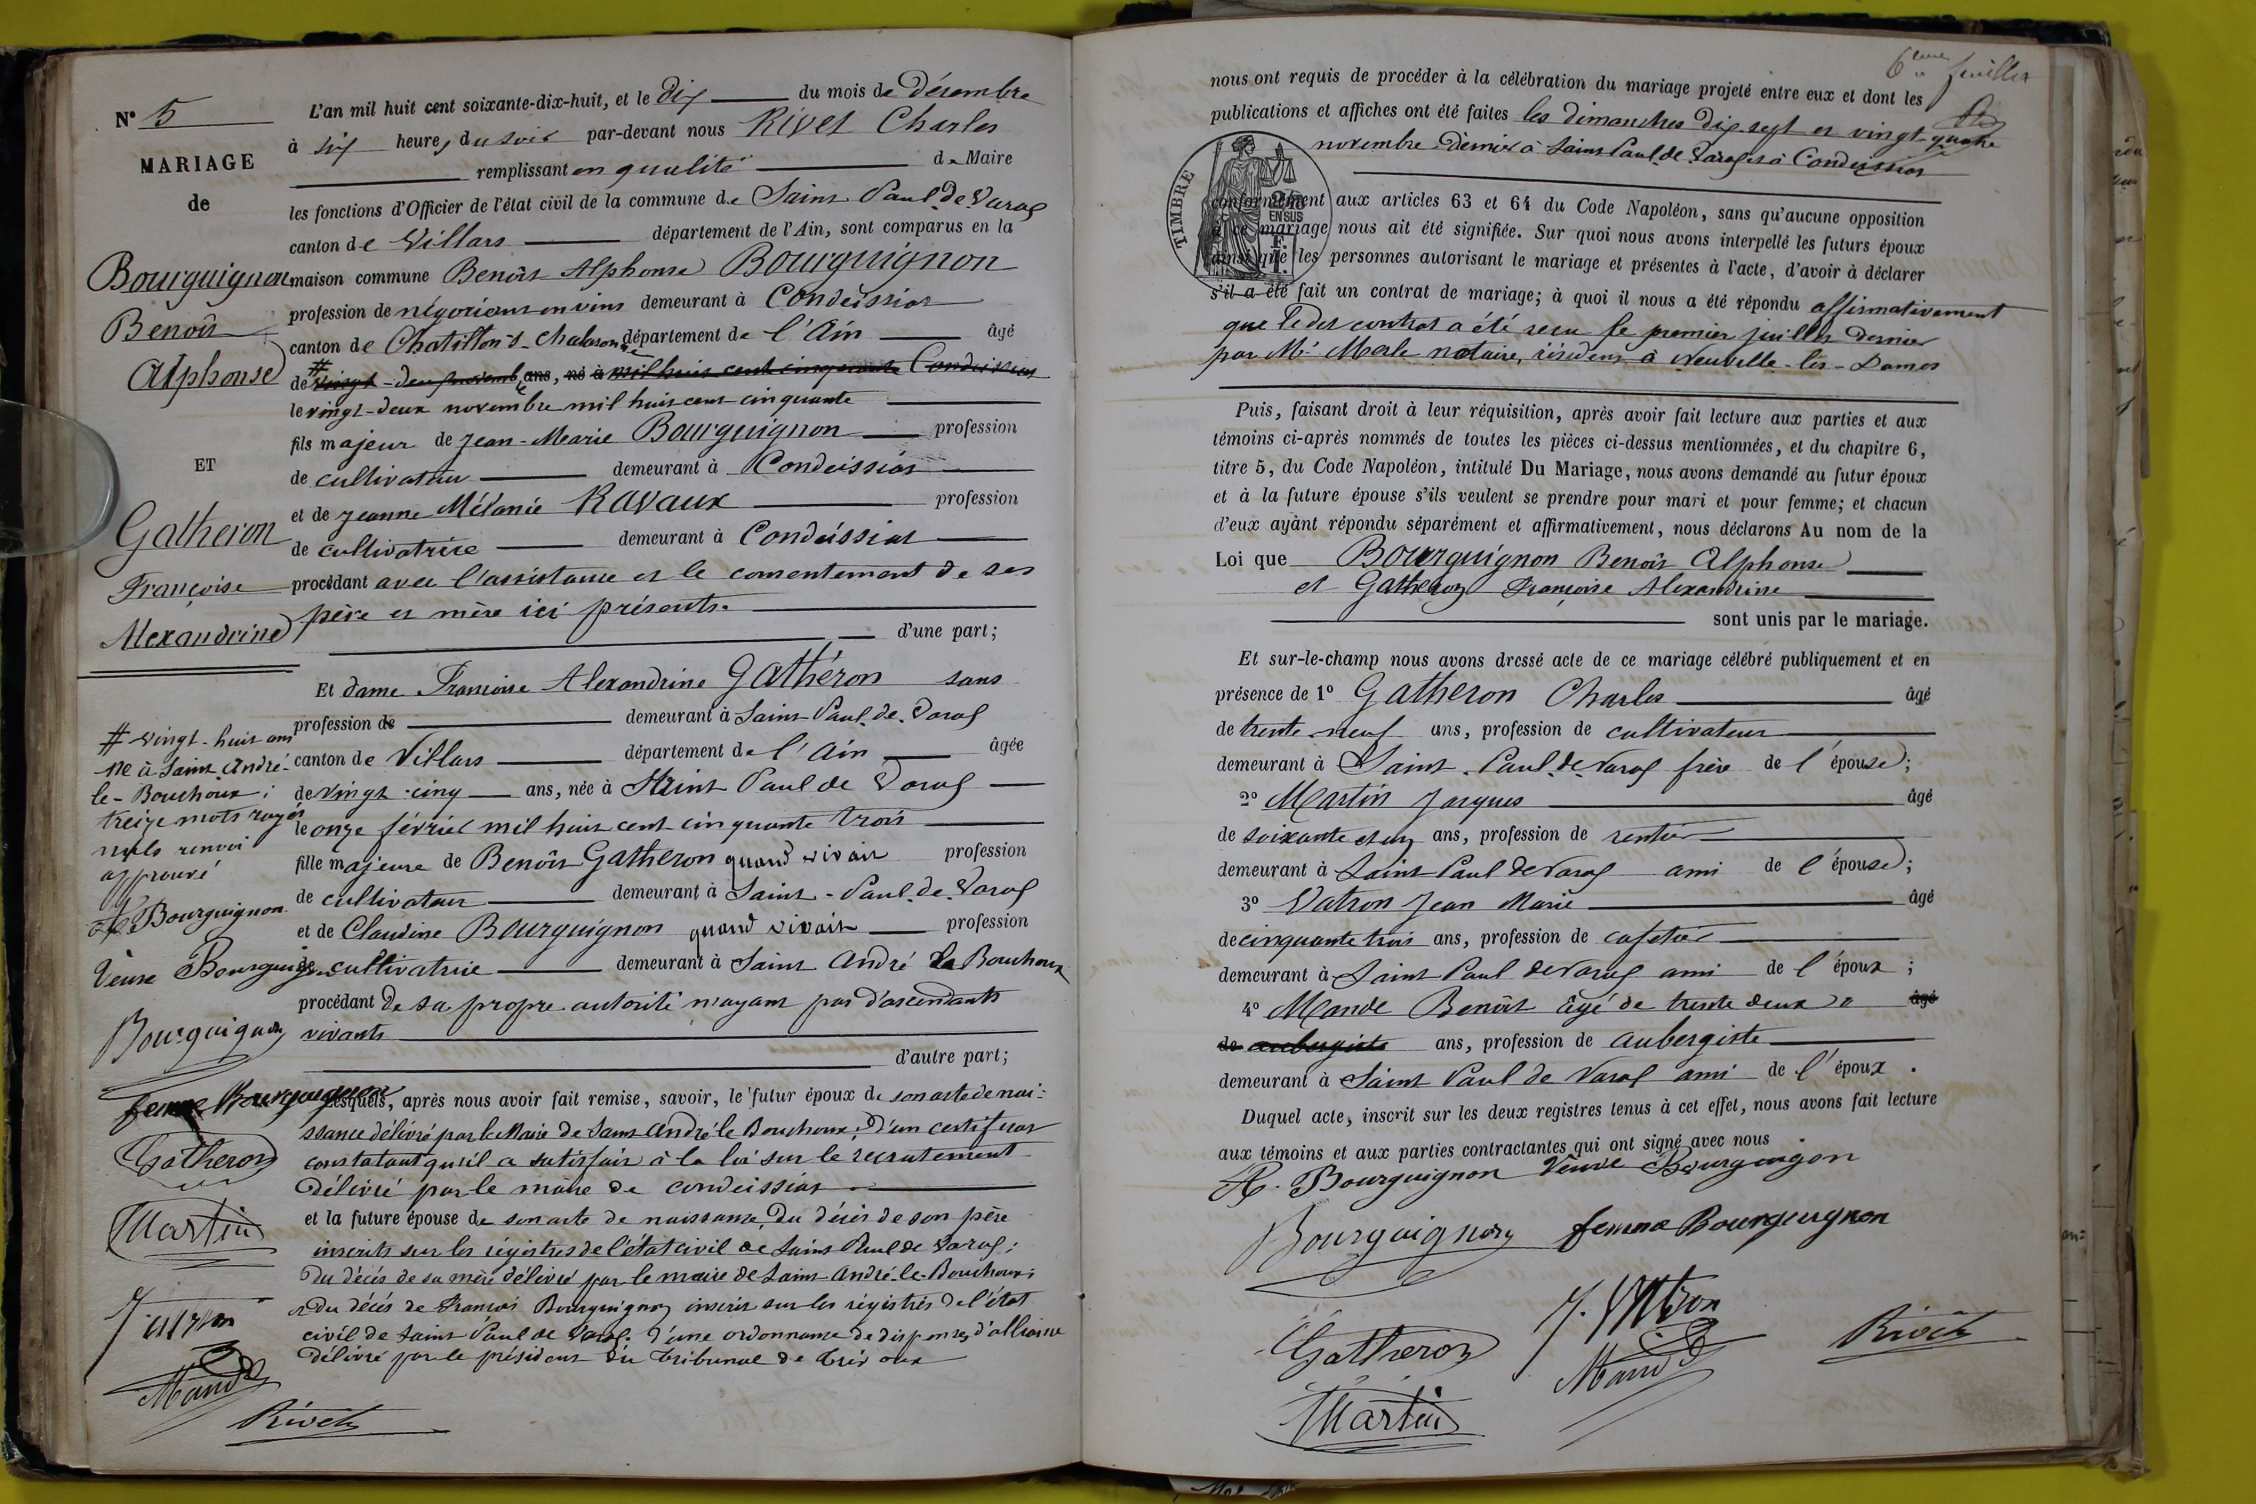 N° 5
MARIAGE
de
Bourguignon
Benoît
Alphonse
ET
Gatheron
Françoise
Alexandrine
# vingt-huit ans
né à Saint André-
le-Bouchoux;
treize mots rayés
nuls renvoi
approuvé
A. Bourguignon
Veuve Bourguignon
Bourguignon
femme Bourguignon
Gatheron
Martin
J. Vatron
Mande
Rivet Ch
L'an mil huit cent soixante-dix-huit, et le dix du mois de Décembre
à six heures du soir par-devant nous Rivet Charles
remplissant en qualité de Maire
les fonctions d'Officier de l'état civil de la commune de Saint Paul de Varax
canton de Villars département de l'Ain, sont comparus en la
maison commune Benoît Alphonse Bourguignon
profession de négociant en vins demeurant à Condeissiat
canton de Chatillon-s-Chalaronne département de l'Ain âgé
de # vingt-deux novembre ans, né à mil huit cent cinquante Condeissiat
le vingt-deux novembre mil huit cent cinquante
fils majeur de Jean-Marie Bourguignon profession
de cultivateur demeurant à Condeissiat
et de Jeanne Mélanie Ravaux profession
de cultivatrice demeurant à Condeissiat
procédant avec l'assistance et le consentement de ses
père et mère ici présents.
d'une part;
Et dame Françoise Alexandrine Gathéron sans
profession de demeurant à Saint-Paul-de-Varax
canton de Villars département de l'Ain âgée
de vingt-cinq ans, née à Saint Paul de Varax
le onze février mil huit cent cinquante trois
fille majeure de Benoît Gatheron quand vivait profession
de cultivateur demeurant à Saint-Paul-de-Varax
et de Claudine Bourguignon quand vivait profession
de cultivatrice demeurant à Saint André le Bouchoux
procédant de sa propre autorité n'ayant pas d'ascendants
vivants
d'autre part;
Lesquels, après nous avoir fait remise, savoir, le futur époux de son acte de nai-
ssance délivré par le Maire de Saint André le Bouchoux; d'un certificat
constatant qu'il a satisfait à la loi sur le recrutement
délivré par le maire de Condeissiat
et la future épouse de son acte de naissance, du décès de son père
inscrits sur les régistres de l'état civil de Saint Paul de Varax;
du décès de sa mère délivré par le maire de Saint-André-le-Bouchoux;
du décès de François Bourguignon inscrit sur les régistrés de l'état
civil de Saint Paul de Varax. d'une ordonnance de dispenses d'alliance
délivré par le président du tribunal de Trévoux
6ème feuillet
nous ont requis de procéder à la célébration du mariage projeté entre eux et dont les
publications et affiches ont été faites les dimanches dix-sept et vingt-quatre
novembre dernier à Saint Paul de Varax et à Condeissiat
TIMBRE
EN SUS
conformément aux articles 63 et 64 du Code Napoléon, sans qu'aucune opposition
à ce mariage nous ait été signifiée. Sur quoi nous avons interpellé les futurs époux
ainsi que les personnes autorisant le mariage et présentes à l'acte, d'avoir à déclarer
s'il a été fait un contrat de mariage; à quoi il nous a été répondu affirmativement
que ledit contrat a été reçu le premier juillet dernier
par Me Merle notaire, résidens à Neuville-les-Dames
Puis, faisant droit à leur réquisition, après avoir fait lecture aux parties et aux
témoins ci-après nommés de toutes les pièces ci-dessus mentionnées, et du chapitre 6,
titre 5, du Code Napoléon, intitulé Du Mariage, nous avons demandé au futur époux
et à la future épouse s'ils veulent se prendre pour mari et pour femme; et chacun
d'eux ayant répondu séparément et affirmativement, nous déclarons Au nom de la
Loi que Bourguignon Benoît Alphonse
et Gatheron Françoise Alexandrine
sont unis par le mariage.
Et sur-le-champ nous avons dressé acte de ce mariage célébré publiquement et en
présence de 1° Gatheron Charles âgé
de trente neuf ans, profession de cultivateur
demeurant à Saint-Paul-de-Varax frère de l'épouse;
2° Martin Jacques âgé
de soixante et un ans, profession de rentier
demeurant à Saint Paul de Varax ami de l'épouse;
3° Vatron Jean Marie âgé
de cinquante trois ans, profession de cafetier
demeurant à Saint Paul de Varax ami de l'époux;
4° Mande Benoît âgé de trente deux âgé
de aubergiste ans, profession de aubergiste
demeurant à Saint Paul de Varax ami de l'époux.
Duquel acte, inscrit sur les deux registres tenus à cet effet, nous avons fait lecture
aux témoins et aux parties contractantes qui ont signé avec nous
A. Bourguignon Veuve Bourguignon
Bourguignon femme Bourguignon
Gatheron J. Vatron Rivet Ch
Martin Mande